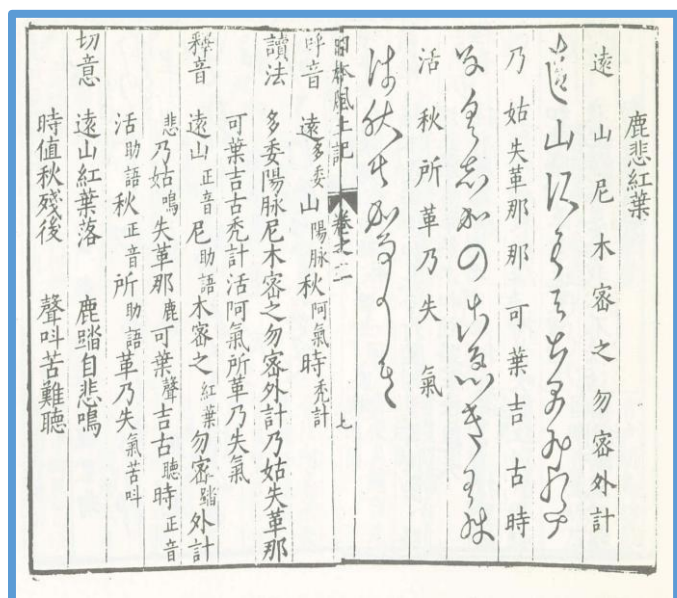 鹿悲紅葉
遠山尼木密之勿密外計
遠山
乃姑失革那那可葉吉古時
活秋所革乃失氣
日本風土記 卷之二 七
呼音 遠多委 山陽脉 秋阿氣 時禿計
讀法 多委陽脉尼木密之勿密外計乃姑失革那
可葉吉古禿計活阿氣所革乃失氣
釋音 遠山正音 尼助語 木密之紅葉 勿密踏外計
悲乃姑鳴失革那鹿可葉聲吉古聽時正音
活助語 秋正音 所助語 革乃失氣苦呌
切意 遠山紅葉落 鹿踏自悲鳴
時值秋殘後 聲呌苦難聽